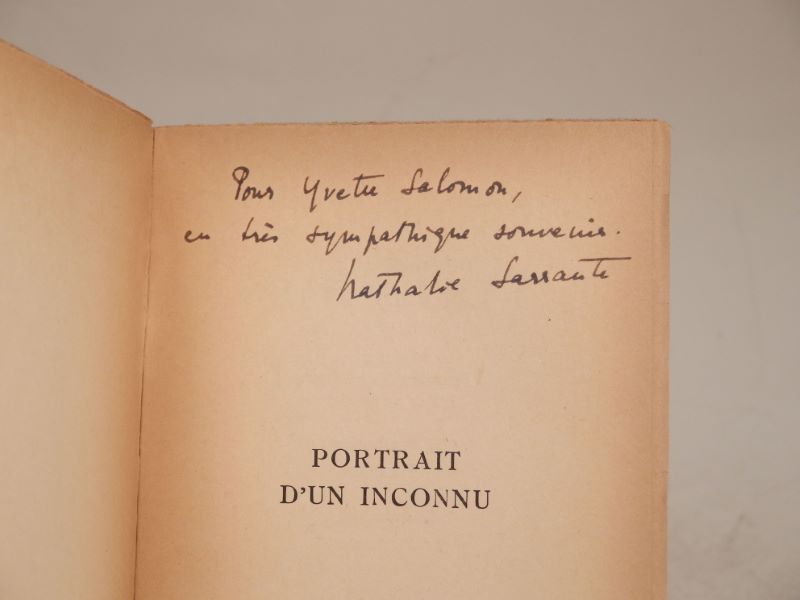 Pour Yvette Salomon,
en très sympathique souvenir.
Nathalie Sarraute
PORTRAIT
D'UN INCONNU